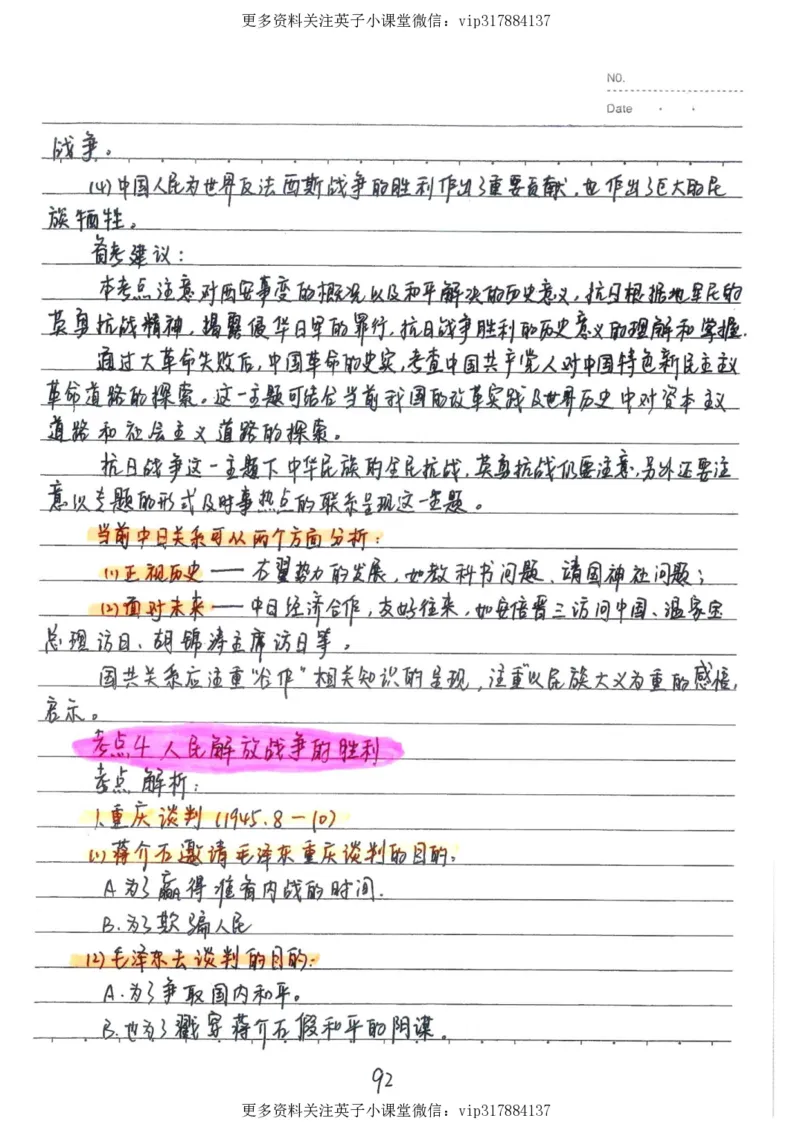 更多资料关注英子小课堂微信：vip317884137
NO.
Date
战争。
(4)中国人民为世界反法西斯战争的胜利作出了重要贡献，也作出了巨大的民
族牺牲。
备考建议：
本考点注意对西安事变的概况以及和平解决的历史意义，抗日根据地军民的
英勇抗战精神，揭露侵华日军的罪行，抗日战争胜利的历史意义的理解和掌握.
通过大革命失败后，中国革命的史实，考查中国共产党人对中国特色新民主主义
革命道路的探索。这一主题可结合当前我国的改革实践及世界历史中对资本主义
道路和社会主义道路的探索。
抗日战争这一主题下中华民族的全民抗战，英勇抗战仍要注意，另外还要注
意以专题的形式及时事热点的联系呈现这一主题。
当前中日关系可从两个方面分析：
(1)正视历史——右翼势力的发展，如教科书问题、靖国神社问题；
(2)面对未来——中日经济合作，友好往来，如安倍晋三访问中国、温家宝
总理访日、胡锦涛主席访日等。
国共关系应注重"合作"相关知识的呈现，注重"以民族大义为重的感悟，
启示。
考点4 人民解放战争的胜利
考点解析：
1.重庆谈判(1945.8－10)
(1)蒋介石邀请毛泽东重庆谈判的目的。
A.为了赢得准备内战的时间.
B.为了欺骗人民
(2)毛泽东去谈判的目的：
A.为了争取国内和平。
B.也为了戳穿蒋介石假和平的阴谋。
92
更多资料关注英子小课堂微信：vip317884137